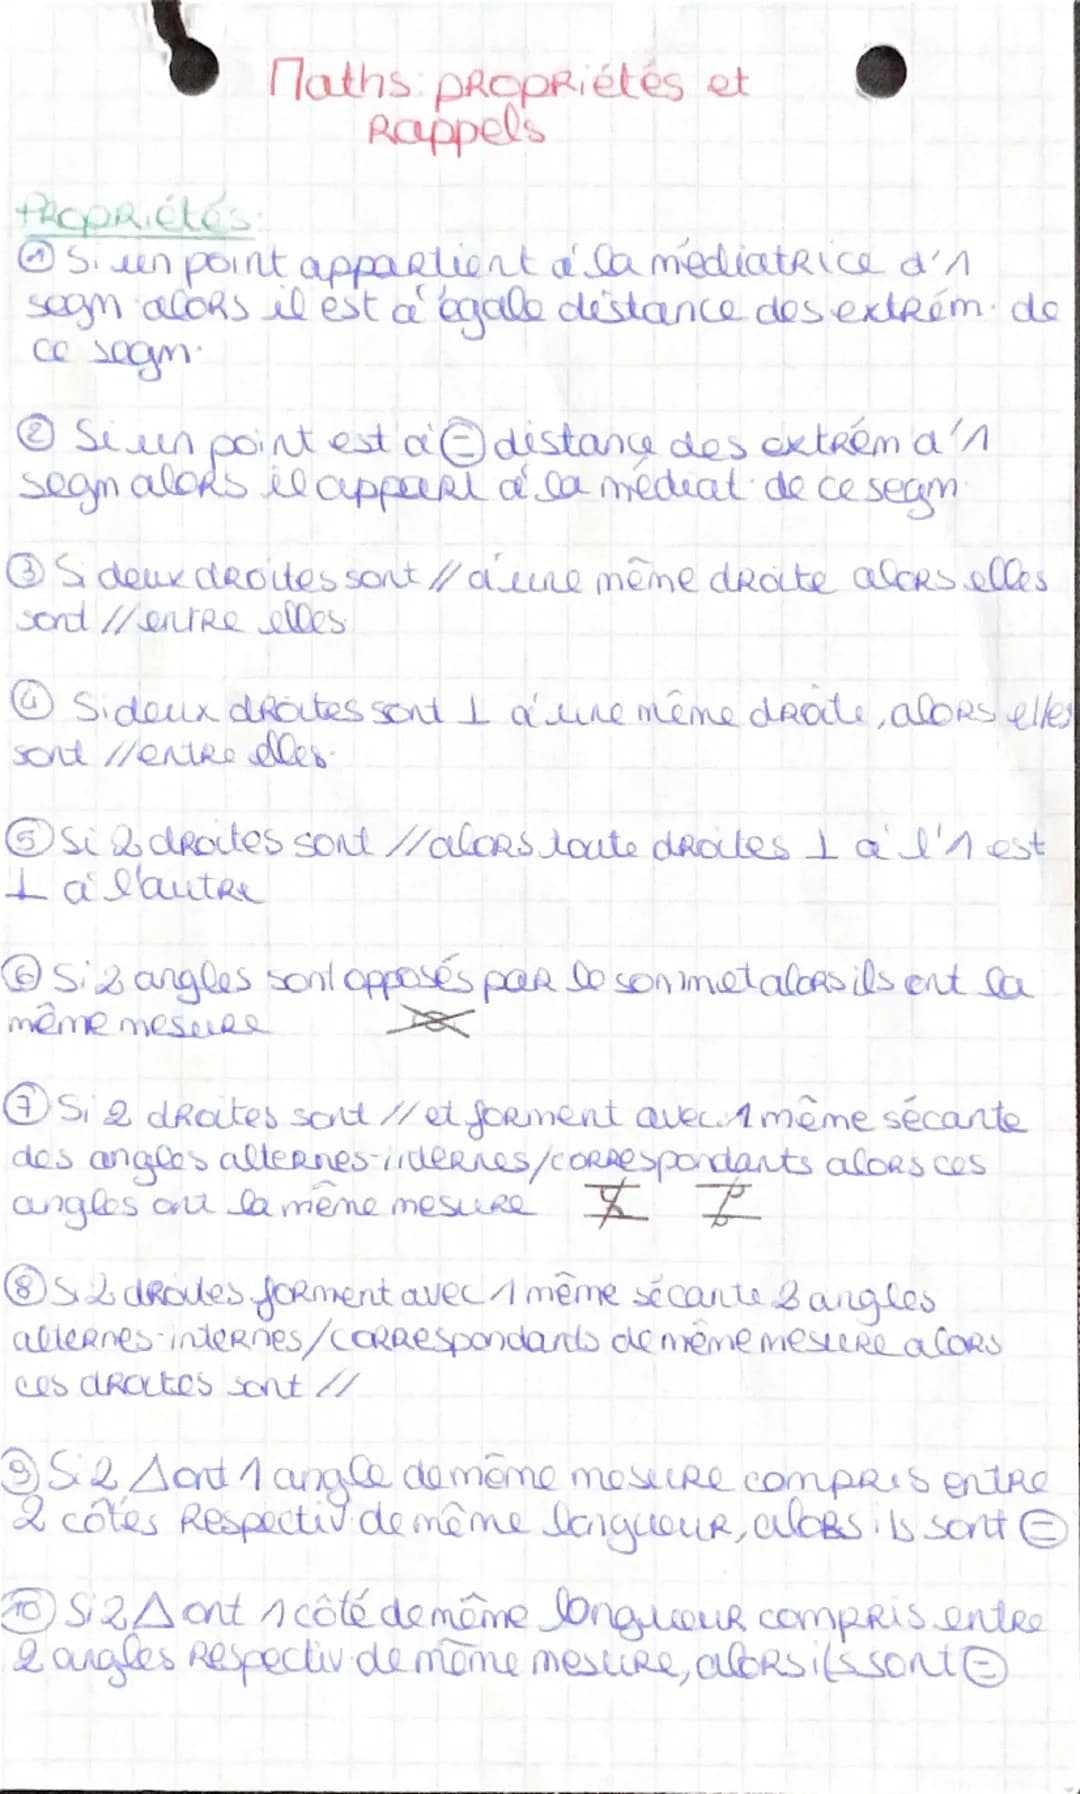 Maths: propriétés et
Rappels
Propriétés:
① Si un point appartient à la médiatrice d'1
segm. alors il est à égale distance des extrém. de
ce segm.
② Si un point est à ⊜ distance des extrém d'1
segm alors il appart à la médiat. de ce segm.
③ Si deux droites sont // à une même droite alors elles
sont // entre elles
④ Si deux droites sont ⊥ à une même droite, alors elles
sont // entre elles.
⑤ Si 2 droites sont // alors toute droites ⊥ à l'1 est
⊥ à l'autre
⑥ Si 2 angles sont opposés par le sommet alors ils ont la
même mesure
⑦ Si 2 droites sont // et forment avec 1 même sécante
des angles alternes-internes/correspondants alors ces
angles ont la même mesure
⑧ Si 2 droites forment avec 1 même sécante 2 angles
alternes-internes/correspondants de même mesure alors
ces droites sont //
⑨ Si 2 △ ont 1 angle de même mesure compris entre
2 côtés respectiv. de même longueur, alors ils sont ⊜
⑩ Si 2 △ ont 1 côté de même longueur compris entre
2 angles respectiv. de même mesure, alors ils sont ⊜